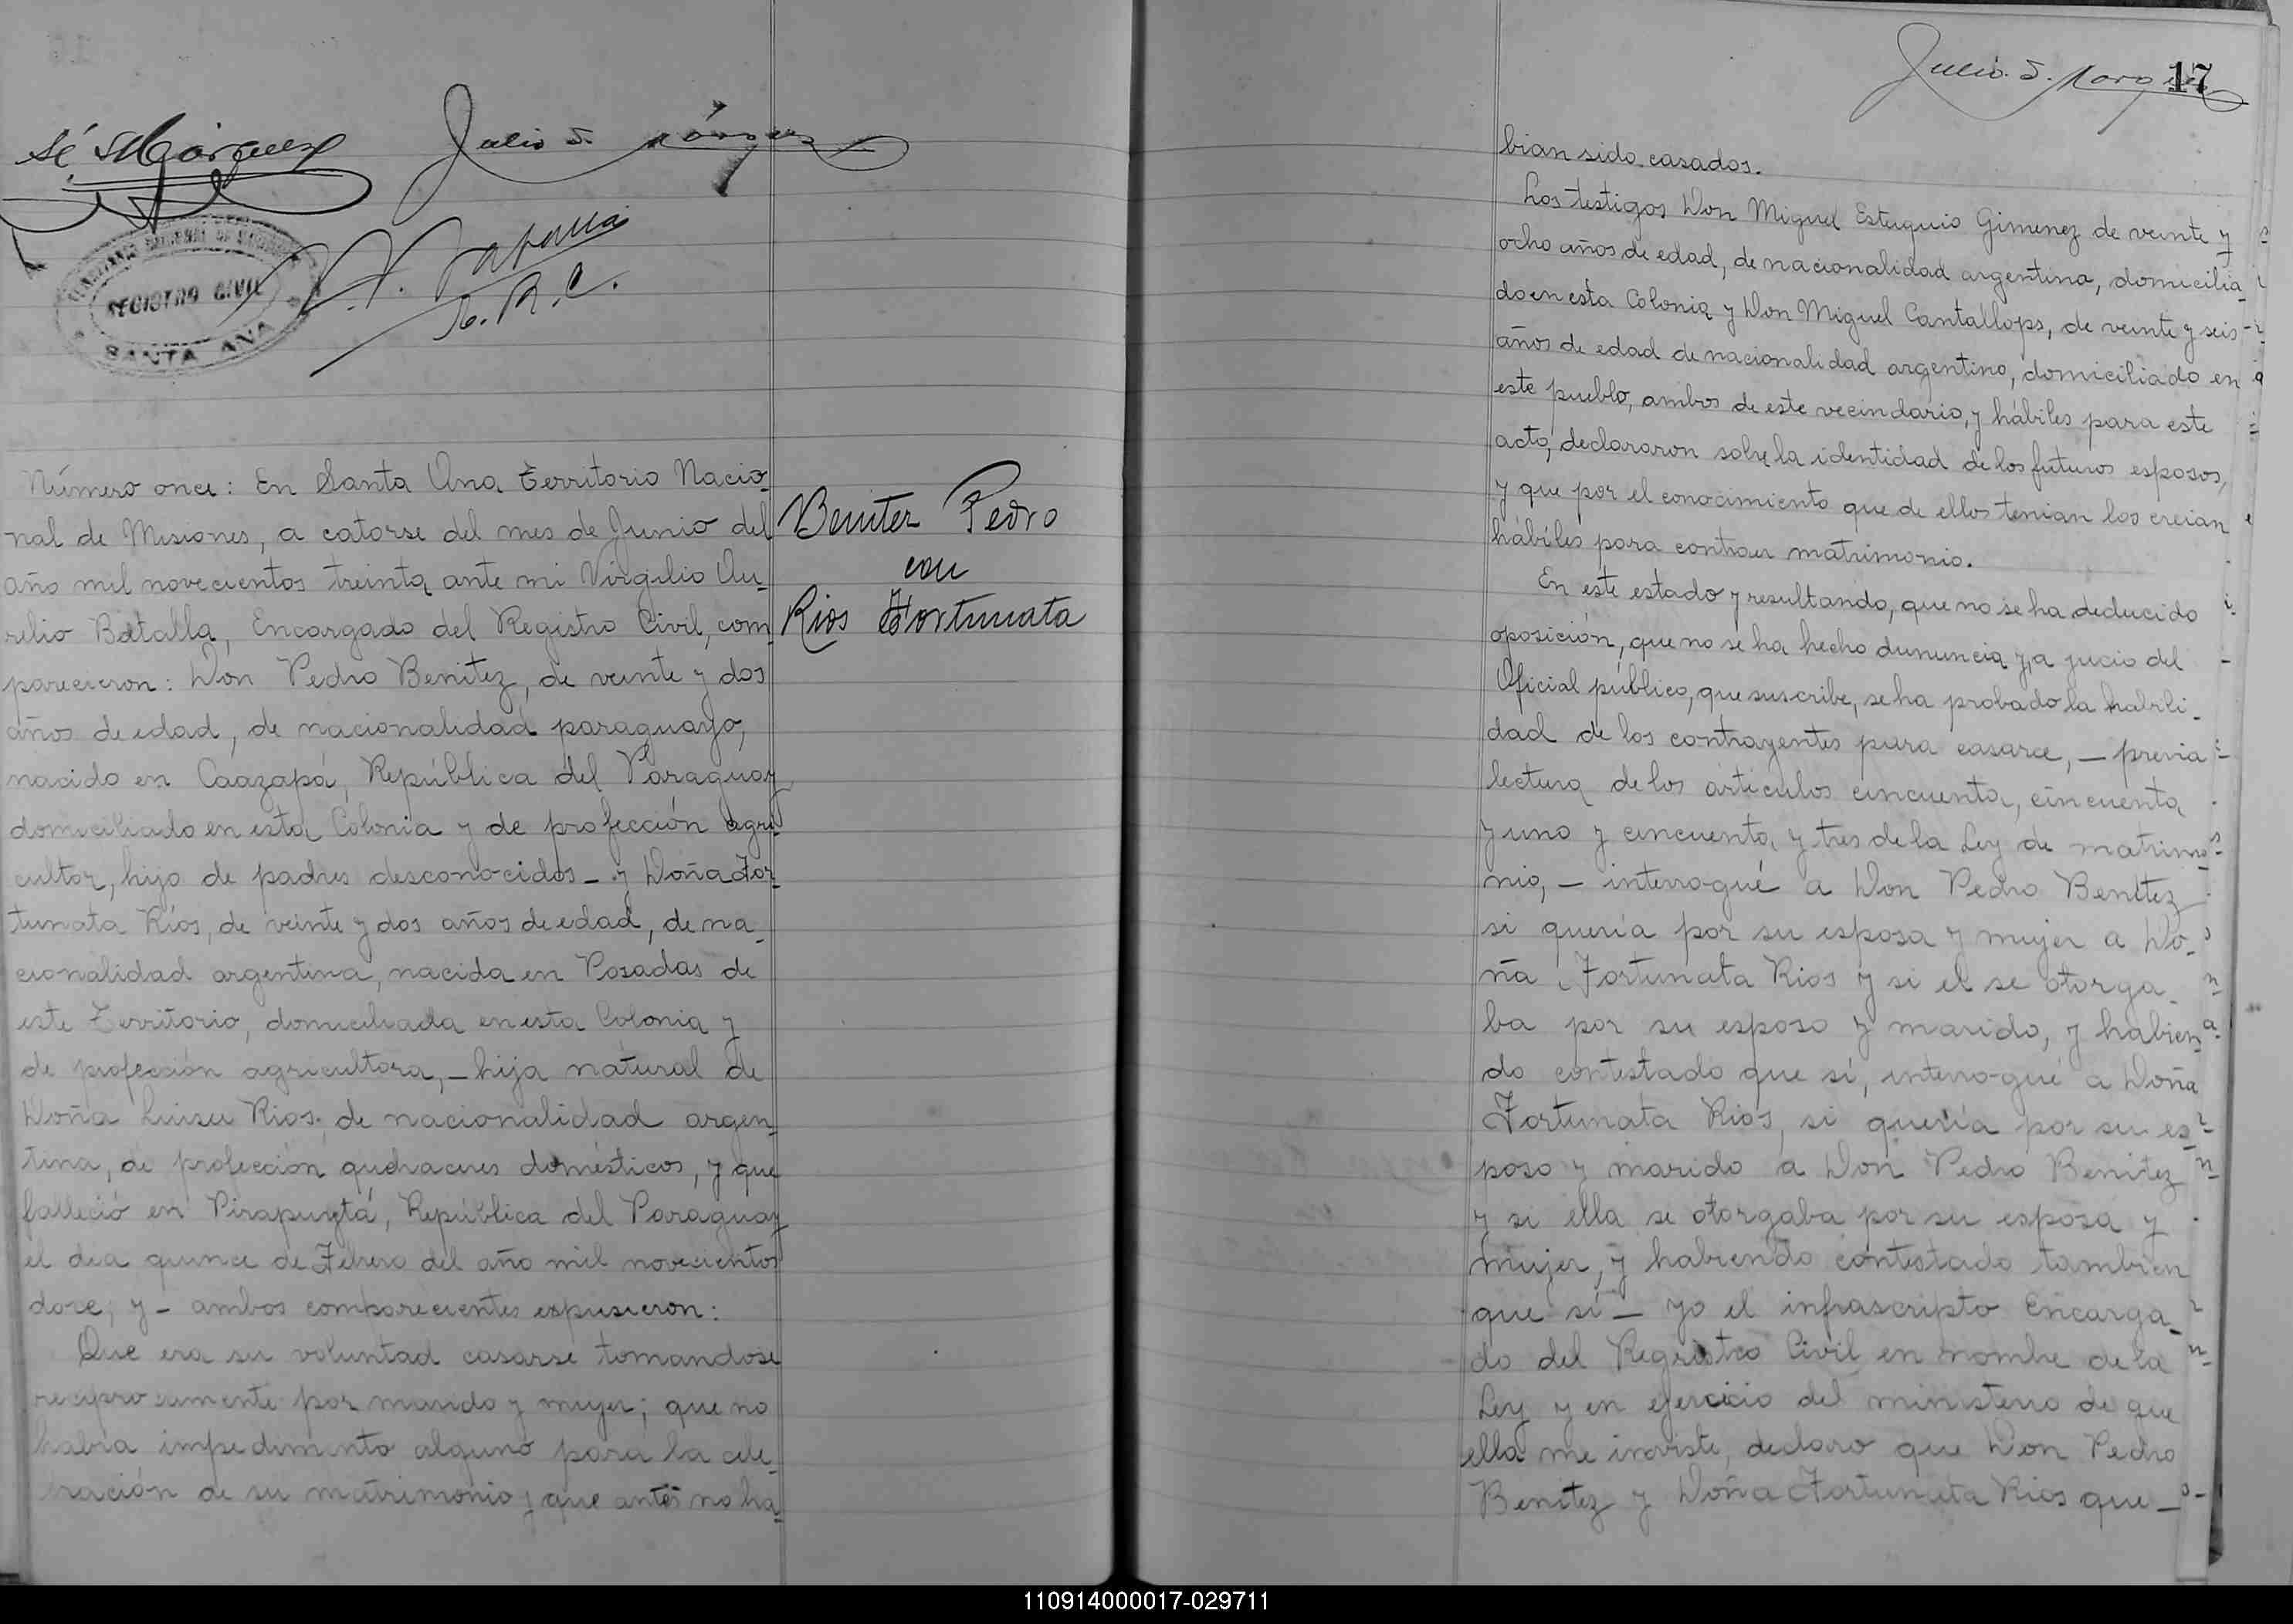 Julio S. Márquez
REGISTRO CIVIL
SANTA ANA
Número once: En Santa Ana Territorio Nacio-
nal de Misiones, a catorse del mes de Junio del
año mil novecientos treinta ante mi Virgilio Au-
relio Batalla, Encargado del Registro Civil, com-
parecieron: Don Pedro Benitez, de veinte y dos
años de edad, de nacionalidad paraguayo,
nacido en Caazapá, República del Paraguay
domiciliado en esta Colonia y de profección agri-
cultor, hijo de padres desconocidos - y Doña For-
tunata Ríos, de veinte y dos años de edad, de na-
cionalidad argentina, nacida en Posadas de
este Territorio, domiciliada en esta Colonia y
de profección agricultora, - hija natural de
Doña Luisa Rios, de nacionalidad argen-
tina, de profección quehaceres domésticos, y que
falleció en Pirapuytá, República del Paraguay
el dia quince de Febrero del año mil novecientos
doce; y - ambos comparecientes expusieron:
Que era su voluntad casarse tomandose
reciprocamente por marido y mujer; que no
habia impedimento alguno para la cele-
bración de su matrimonio; que antes no ha-
Benitez Pedro
con
Rios Fortunata
Julio S. Marquez
17
bian sido casados.
Los testigos Don Miguel Estaquio Gimenez de veinte y
ocho años de edad, de nacionalidad argentina, domicilia-
do en esta Colonia y Don Miguel Cantallops, de veinte y seis
años de edad de nacionalidad argentino, domiciliado en
este pueblo, ambos de este vecindario, y hábiles para este
acto, declararon sobre la identidad de los futuros esposos,
y que por el conocimiento que de ellos tenian los creian
hábiles para contraer matrimonio.
En este estado y resultando, que no se ha deducido
oposición, que no se ha hecho denuncia y, a jucio del
Oficial público, que suscribe, se ha probado la habili-
dad de los contrayentes para casarce, - previa
lectura de los articulos cincuenta, cincuenta
y uno y cincuenta y tres de la Ley de matrimo-
nio, - interrogué a Don Pedro Benítez
si quería por su esposa y mujer a Do-
ña Fortunata Rios y si el se otorga-
ba por su esposo y marido, y habien-
do contestado que sí, interrogué a Doña
Fortunata Rios, si quería por su es-
poso y marido a Don Pedro Benitez
y si ella se otorgaba por su esposa y
mujer, y habiendo contestado tambien
que sí - yo el infrascripto Encarga-
do del Registro Civil en nombre de la
Ley y en ejercicio del ministerio de que
ella me inviste, declaro que Don Pedro
Benitez y Doña Fortunata Rios que-
110914000017-029711